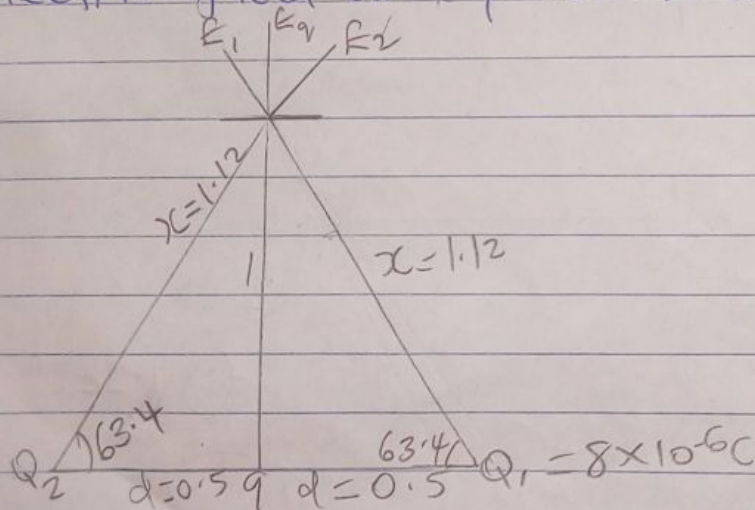 E₁ Eq E₂
x=1.12
1
x=1.12
63.4
63.4
Q₂ d=0.5 q d=0.5 Q₁ =8×10⁻⁶C